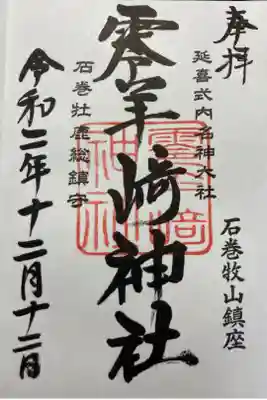 奉拝
延喜式内名神大社
石巻牧山鎮座
零羊崎神社
石巻牡鹿総鎮守
令和二年十二月十二日